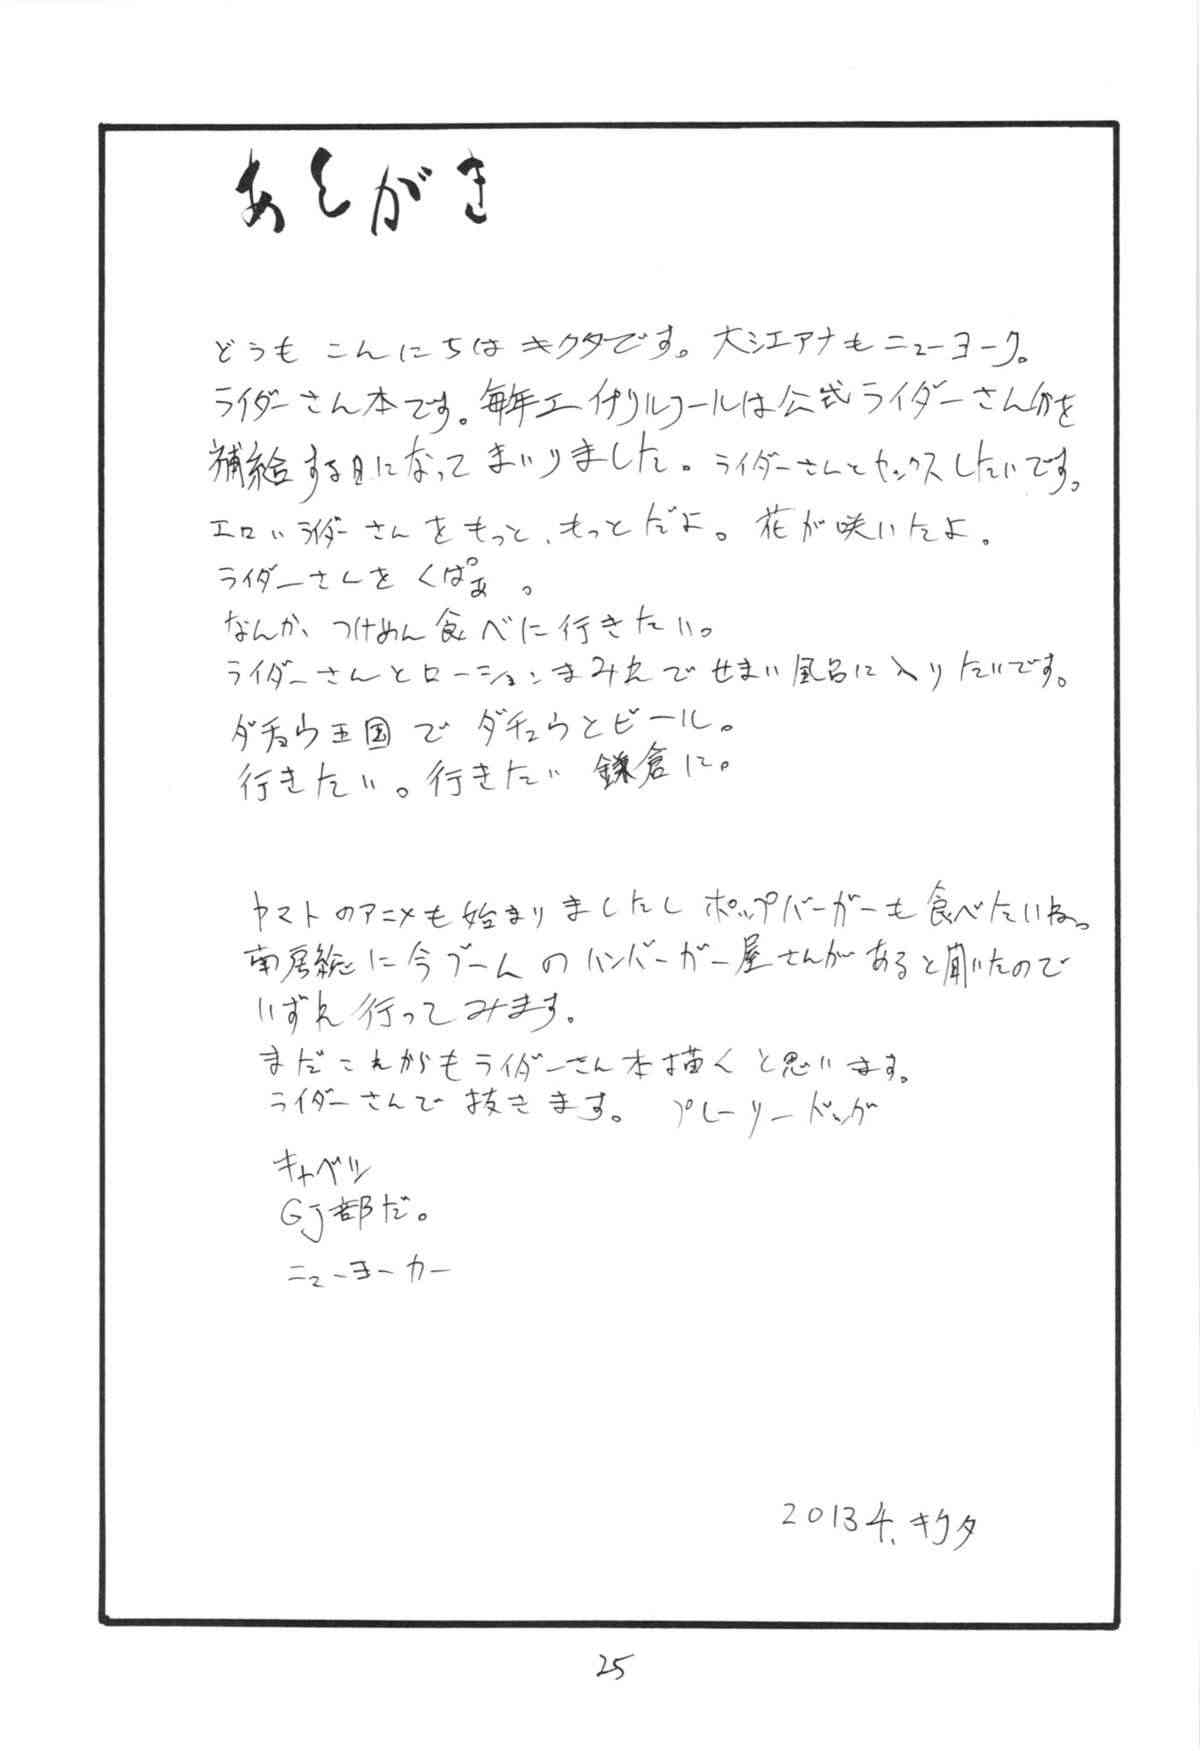 あとがき
どうも こんにちは キクタです。大シエアナもニューヨーク。
ライダーさん本です。毎年エイプリルフールは公式ライダーさん分を
補給する日になってまいりました。ライダーさんとセックスしたいです。
エロいライダーさんをもっと、もっとだよ。花が咲いたよ。
ライダーさんを くぱぁ。
なんか、つけめん食べに行きたい。
ライダーさんとローションまみれでせまい風呂に入りたいです。
ダチョウ王国で ダチョウとビール。
行きたい。行きたい 鎌倉に。
ヤマトのアニメも始まりましたし ポップバーガーも食べたいね。
南房総に今ブームのハンバーガー屋さんがあると聞いたので
いずれ行ってみます。
まだこれからもライダーさん本描くと思います。
ライダーさんで抜きます。 プレーリードッグ
キャベツ
GJ部だ。
ニューヨーカー
2013 4. キクタ
25